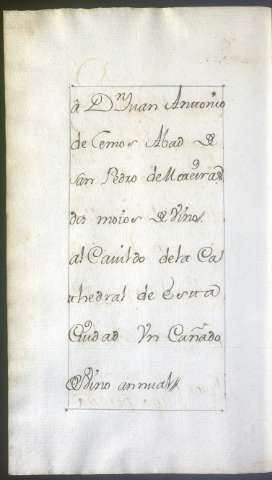 a Dn Juan Antonio
de Lemos Abad de
san Pedro de
dos moios de Vino
al Cavildo dela Ca
thedral de Esta
Ciudad Vn Cañado
de Vino annual